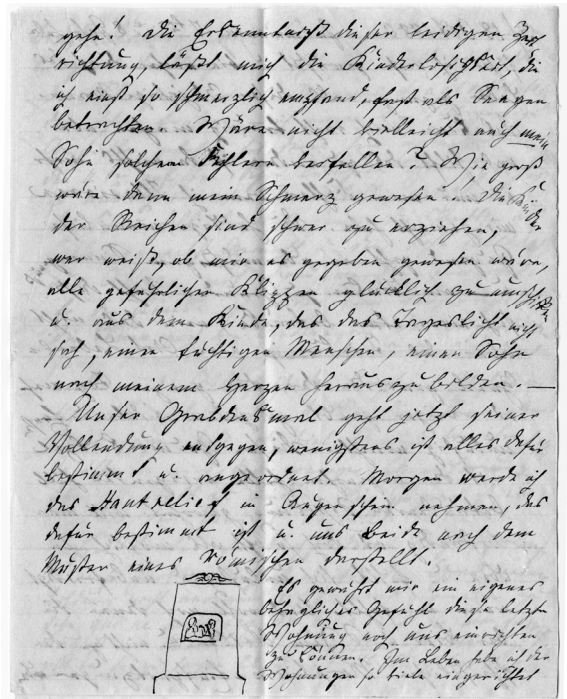 gehe! Die Erkenntniß dieser leidigen Zer-
richtung, läßt mich die Kinderlosigkeit, die
ich einst so schmerzlich empfand, fast als Seegen
betrachten. Wäre nicht vielleicht auch mein
Sohn solchem Fehlern verfallen? Wie groß
wäre dann mein Schmerz gewesen. Die Kinder
der Reichen sind schwer zu erziehen,
wer weiß, ob mir es gegeben gewesen wäre,
alle gefährlichen Klippen glücklich zu umschiffen
u. aus dem Kinde, das das Tageslicht nicht
sah, einen tüchtigen Menschen, einen Sohn
nach meinem Herzen herauszubilden. —
Unser Grabdenkmal geht jetzt seiner
Vollendung entgegen, wenigstens ist alles dafür
bestimmt u. angeordnet. Morgen werde ich
das Hautrelief in Augenschein nehmen, das
dafür bestimmt ist u. uns beide nach dem
Muster eines römischen darstellt.
Es gewährt mir ein eigenes
behagliches Gefühl diese letzte
Wohnung noch uns einrichten
zu können. Im Leben habe ich der
Wohnungen so viele eingerichtet